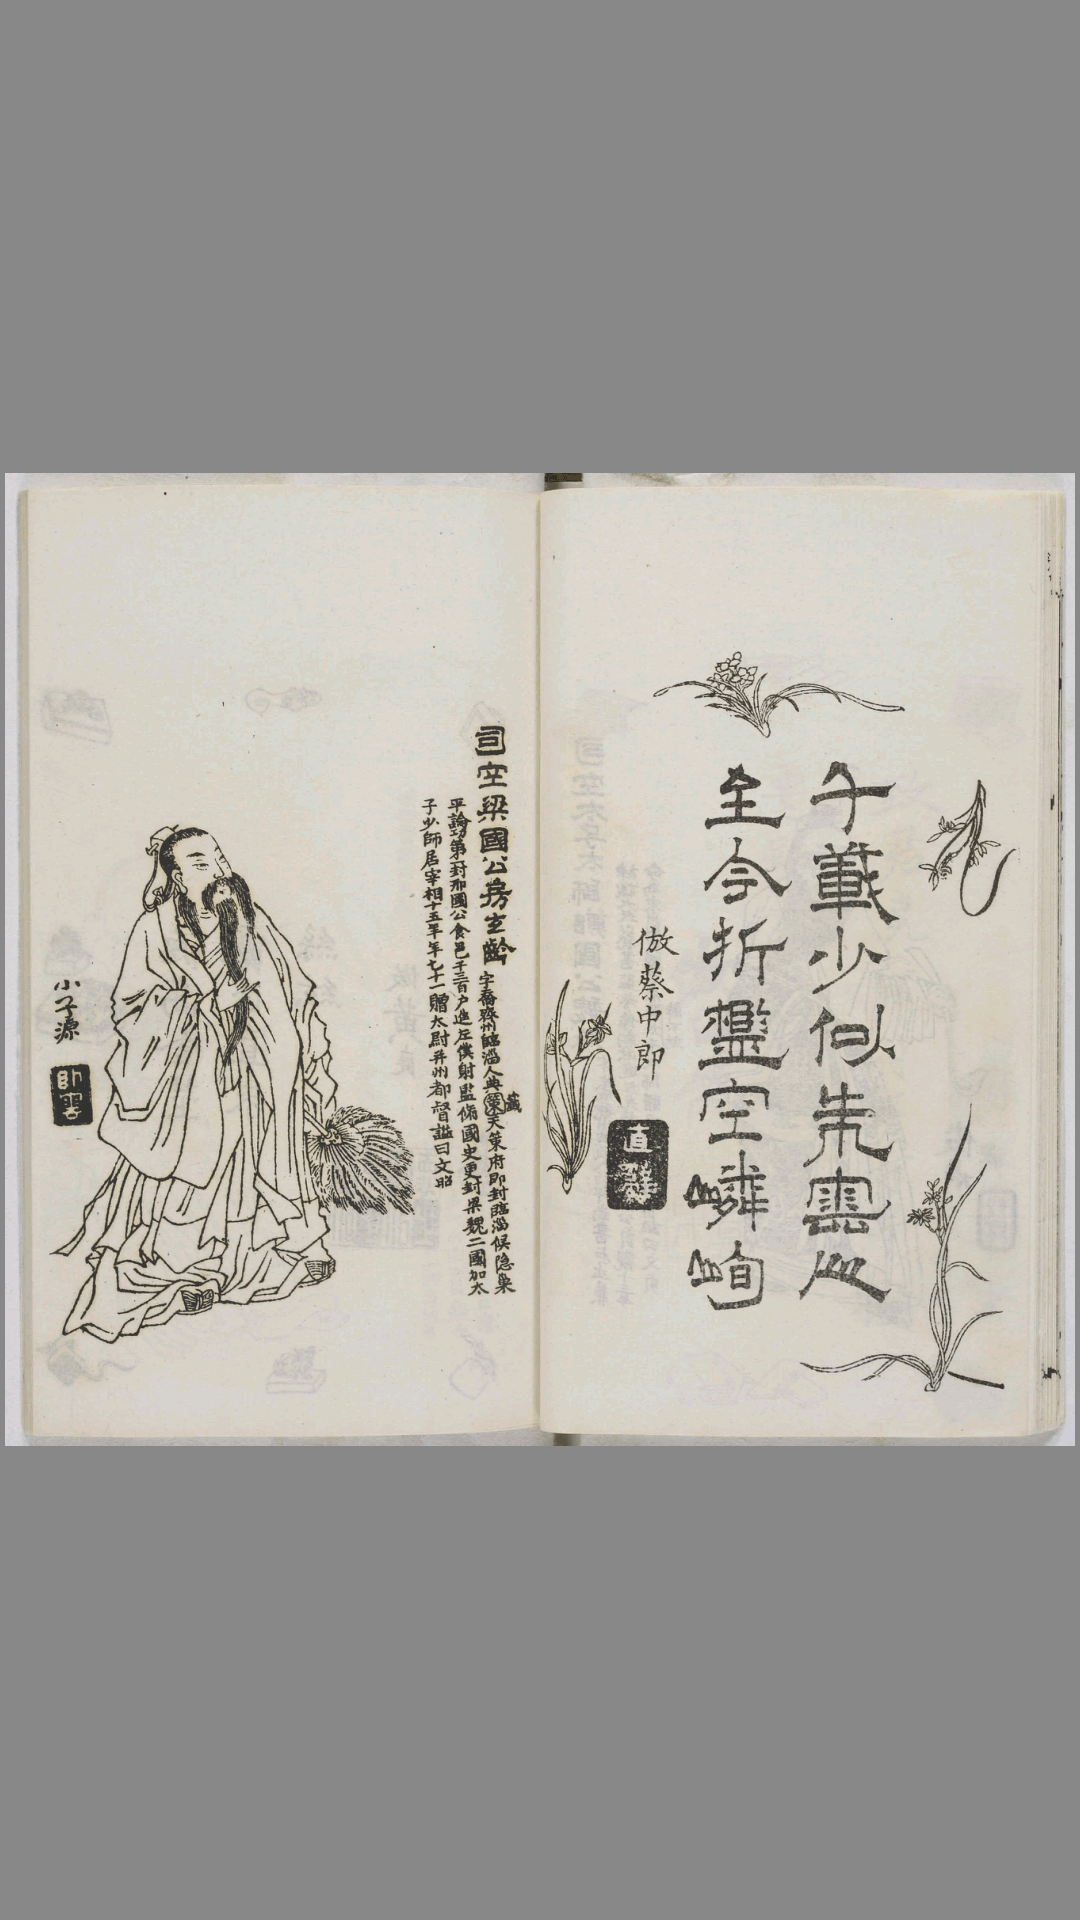 千載少似朱雲心
至今折檻空嶙峋
倣蔡中郎
直
司空梁國公房玄齡
字喬齊州臨淄人典策天策府即封臨淄侯隐巢
平論功第封邢國公食邑千三百户進左僕射監脩國史更封梁魏二國加太
子少師居宰相十五年年七十一贈太尉并州都督謚曰文昭
小子源
卧雲